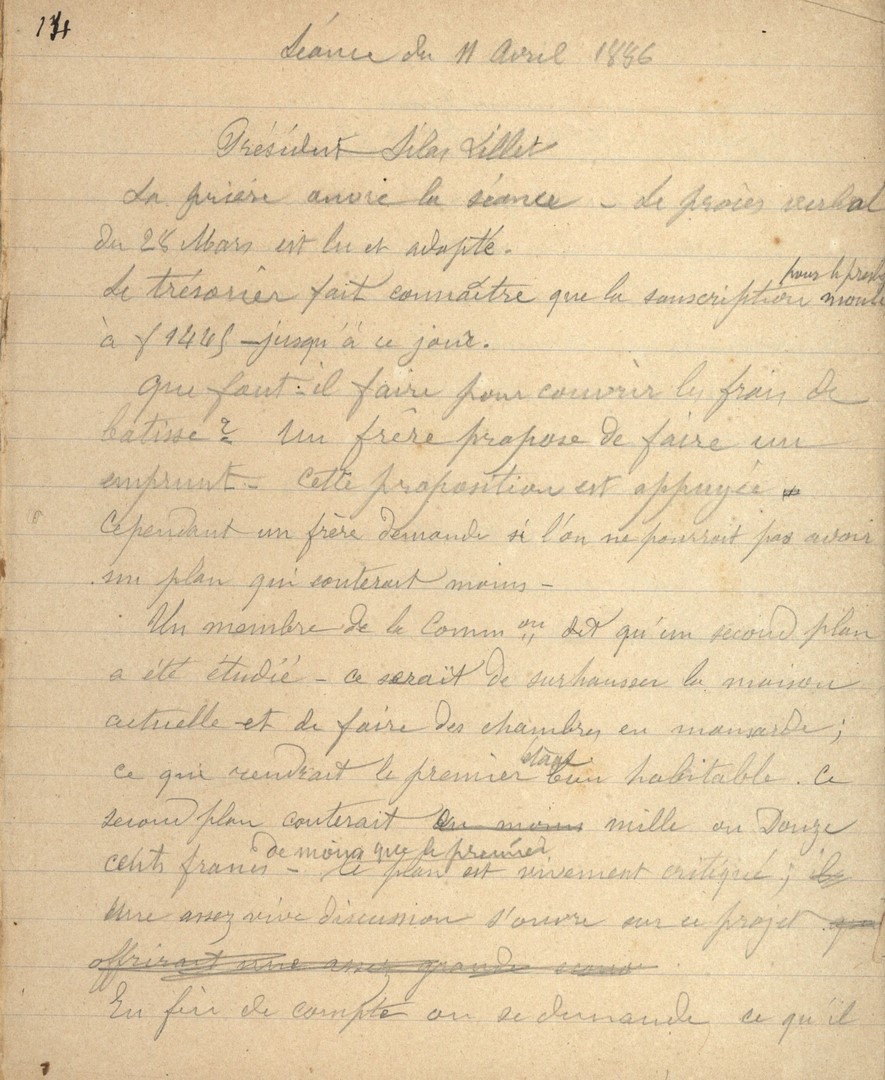 134
Séance du 11 Avril 1886
Président Silas Lillet
La prière ouvre la séance - Le procès verbal
du 28 Mars est lu et adopté.
Le trésorier fait connaître que la souscription pour le monte
à f 1445 - jusqu'à ce jour.
Que faut-il faire pour couvrir les frais de
batisse? Un frère propose de faire un
emprunt - Cette proposition est appuyée
Cependant un frère demande si l'on ne pourrait pas avoir
un plan qui couterait moins -
Un membre de la Common dit qu'un second plan
a été étudié - ce serait de surhausser la maison
actuelle et de faire des chambres en mansarde;
ce qui rendrait le premier étage bien habitable. Ce
second plan couterait au moins mille ou Douze
cents francs de moins que le premier - Ce plan est vivement critiqué;
Une assez vive discussion s'ouvre sur ce projet
offrirait une assez grande
En fin de compte on se demande ce qu'il